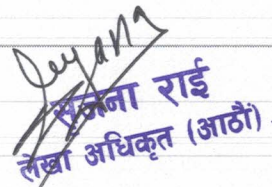 सृजना राई
लेखा अधिकृत (आठौं)